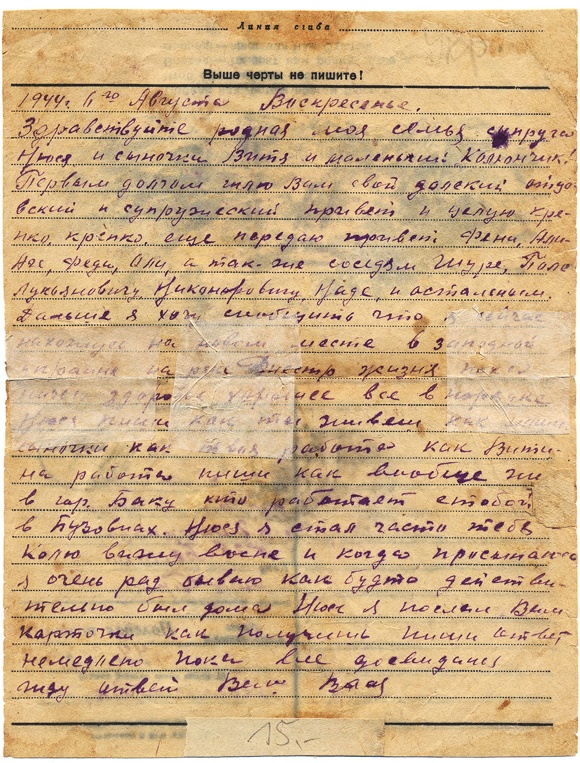 Линия сгиба
Выше черты не пишите!
1944 г. 6го Августа Воскресенье.
Здравствуйте родная моя семья супруга
Нюся и сыночки Витя и маленький Колюнчик!
Первым долгом шлю Вам свой далский отцо-
вский и супружеский привет и целую кре-
пко, крепко, еще передаю привет Фени,
Феди, Оли, а так-же соседям Шуре, Поле
Лукьяновичу, Никоноровичу, Наде, и остальным.
Дальше я хочу сообщить что я сейчас
нахожусь на новом месте в западной
украине на реки Днестр жизня пока
здоровье хорошее все в порядке
Нюся пиши как ты живеш как наши
сыночки как твоя работа как Вити-
на работа пиши как вообще жи
в гор. Баку кто работает стобой
в Бузовнах. Нюся я стал часто тебя
Колю вижу восне и когда просыпаюсь
я очень рад бываю как будто действи-
тельно был дома Нюся я послал Вам
карточки как получишь пиши ответ
немедлено пока все досвидания
жду ответ Ваш
15.-